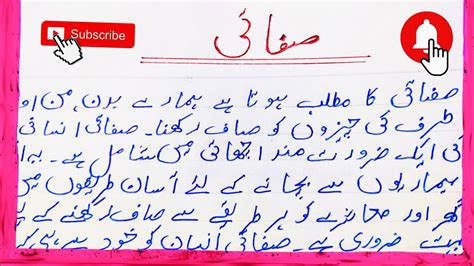 Subscribe
صفائی
صفائی کا مطلب ہوتا ہے ہمارے بدن، من او
طرف کی چیزوں کو صاف رکھنا۔ صفائی انسانی
کی ایک ضرورت مند اچھائی میں شامل ہے۔ یہ
بیماریوں سے بچانے کے لئے آسان طریقوں میں
گھر اور معاشرے کو ہر طریقے سے صاف رکھنے کے لئے
بہت ضروری ہے۔ صفائی انسان کو خود ہی